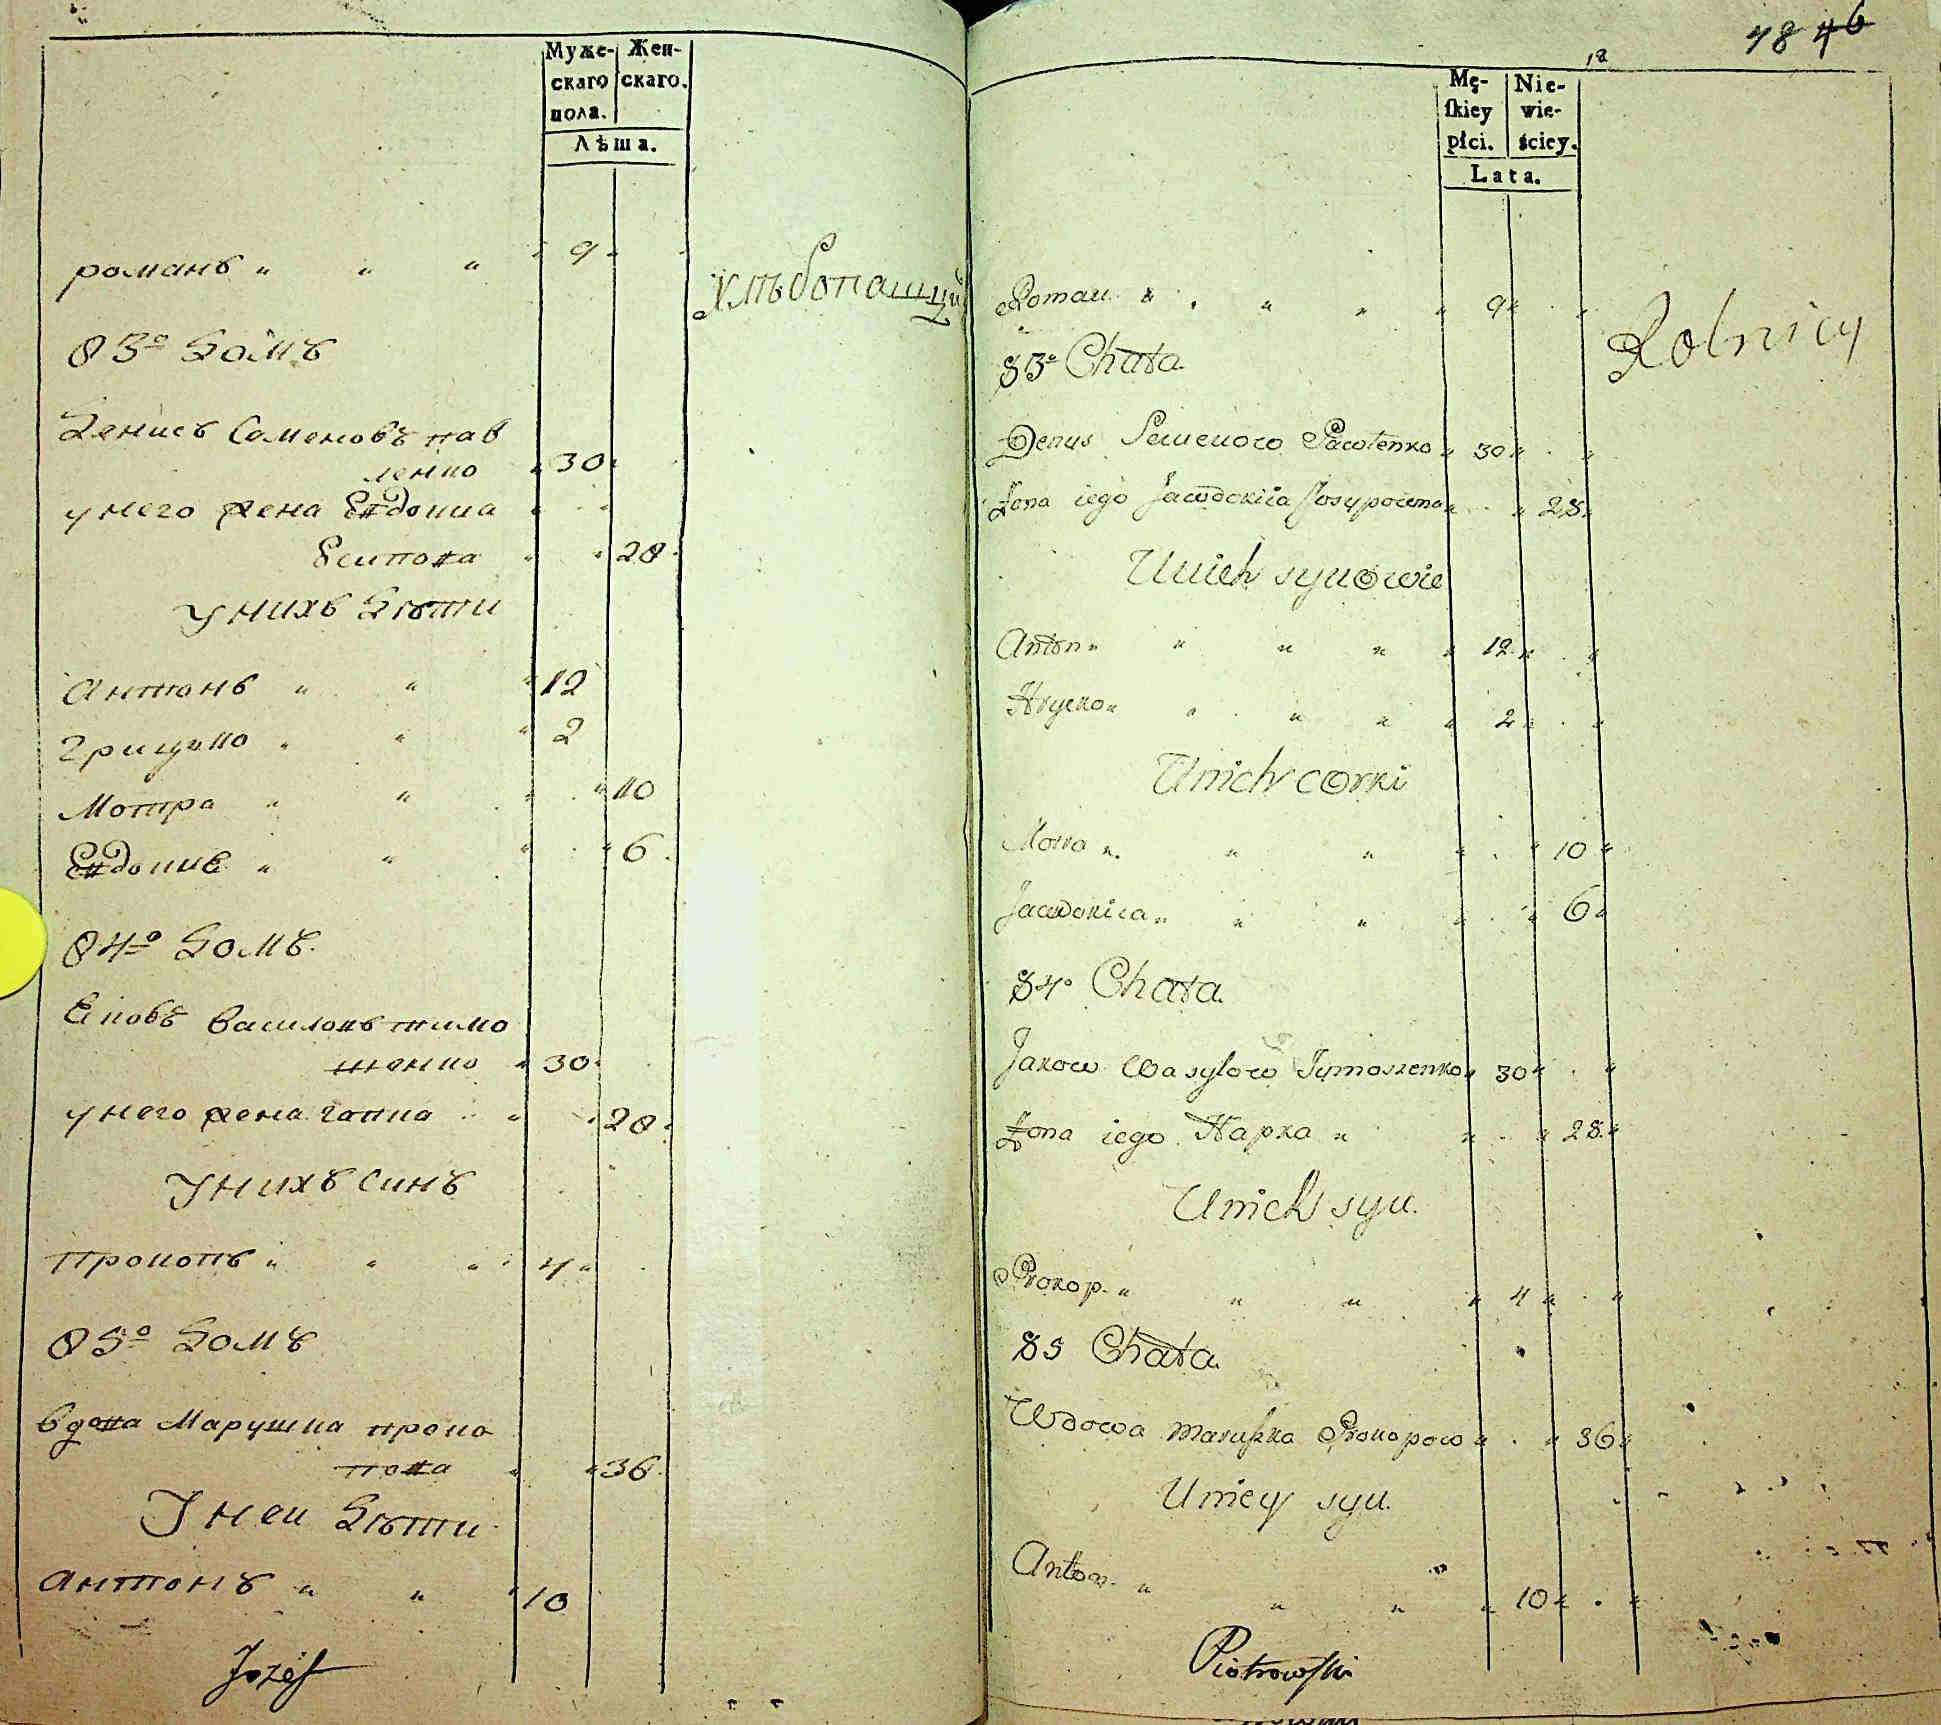 Муже-
скаго
пола.
Жен-
скаго.
Лѣта.
романъ " " " " 9 "
Хлѣбопашцы
83º Домъ
Денисъ Семеновъ пав
ленко " 30 "
у него жена Евдокиа
Есипова " " 28
У нихъ Дѣти
Антонъ " " " 12
Грицько " " " 2
Мотра " " " " 10
Евдокиѣ " " " " 6
84º Домъ.
Ековъ Василовъ тимо
шенко " 30 "
у него жена гапка " " 28
У нихъ Синъ
Прокопъ " " " 4 "
85º Домъ
Вдова Марушка проко
пова " " 36
У неи Дѣти
Антонъ " " " 10
Józéf
4846
18
Mę-
ſkiey
płci.
Nie-
wie-
ściey.
Lata.
Roman " " " " " 9 "
Rolnicy
83º Chata
Denys Semenow Pawlenko " 30 "
Żona iego Jawdokiia Josypowna " " 28 "
Unich synowie
Anton " " " " " 12 "
Hrycko " " " " 2 "
Unich corki
Motra " " " " " 10 "
Jawdokiia " " " " " 6 "
84º Chata
Jakow Wasylow Tymoszenko " 30 "
Żona iego Hapka " " " 28 "
Unich syn.
Prokop " " " " 4 "
85 Chata
Wdowa Maruſzka Prokopow " " 36 "
Uniey syn.
Anton " " " " 10 "
Piotrowſki